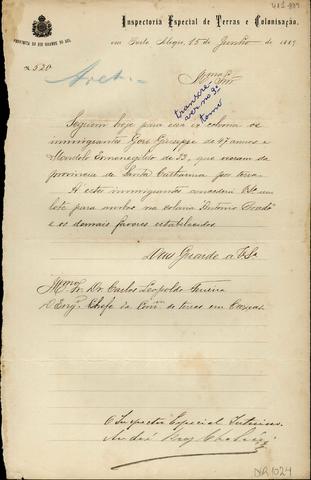 481-989
Inspectoria Especial de Terras e Colonisação,
PROVINCIA DO RIO GRANDE DO SUL
em Porto Alegre, 15 de Junho de 1889
N. 520
Illmo. Snr.
transcre
ver no 9º
tomo
Seguem hoje para essa ex colonia os
immigrantes Gosi Giuseppe de 47 annos e
Mondolo Ermenegildo de 23, que vieram da
provincia de Santa Catharina por terra.
A estes immigrantes concederá VSa. um
lote para ambos na colonia Antonio Prado
e os demais favores estabelecidos.
Deus Guarde a VSa
Illmo. Sr. Dr. Carlos Leopoldo
D. Engo. Chefe da Comm. de terras em Caxias
O Inspector Especial Interino
André
1024